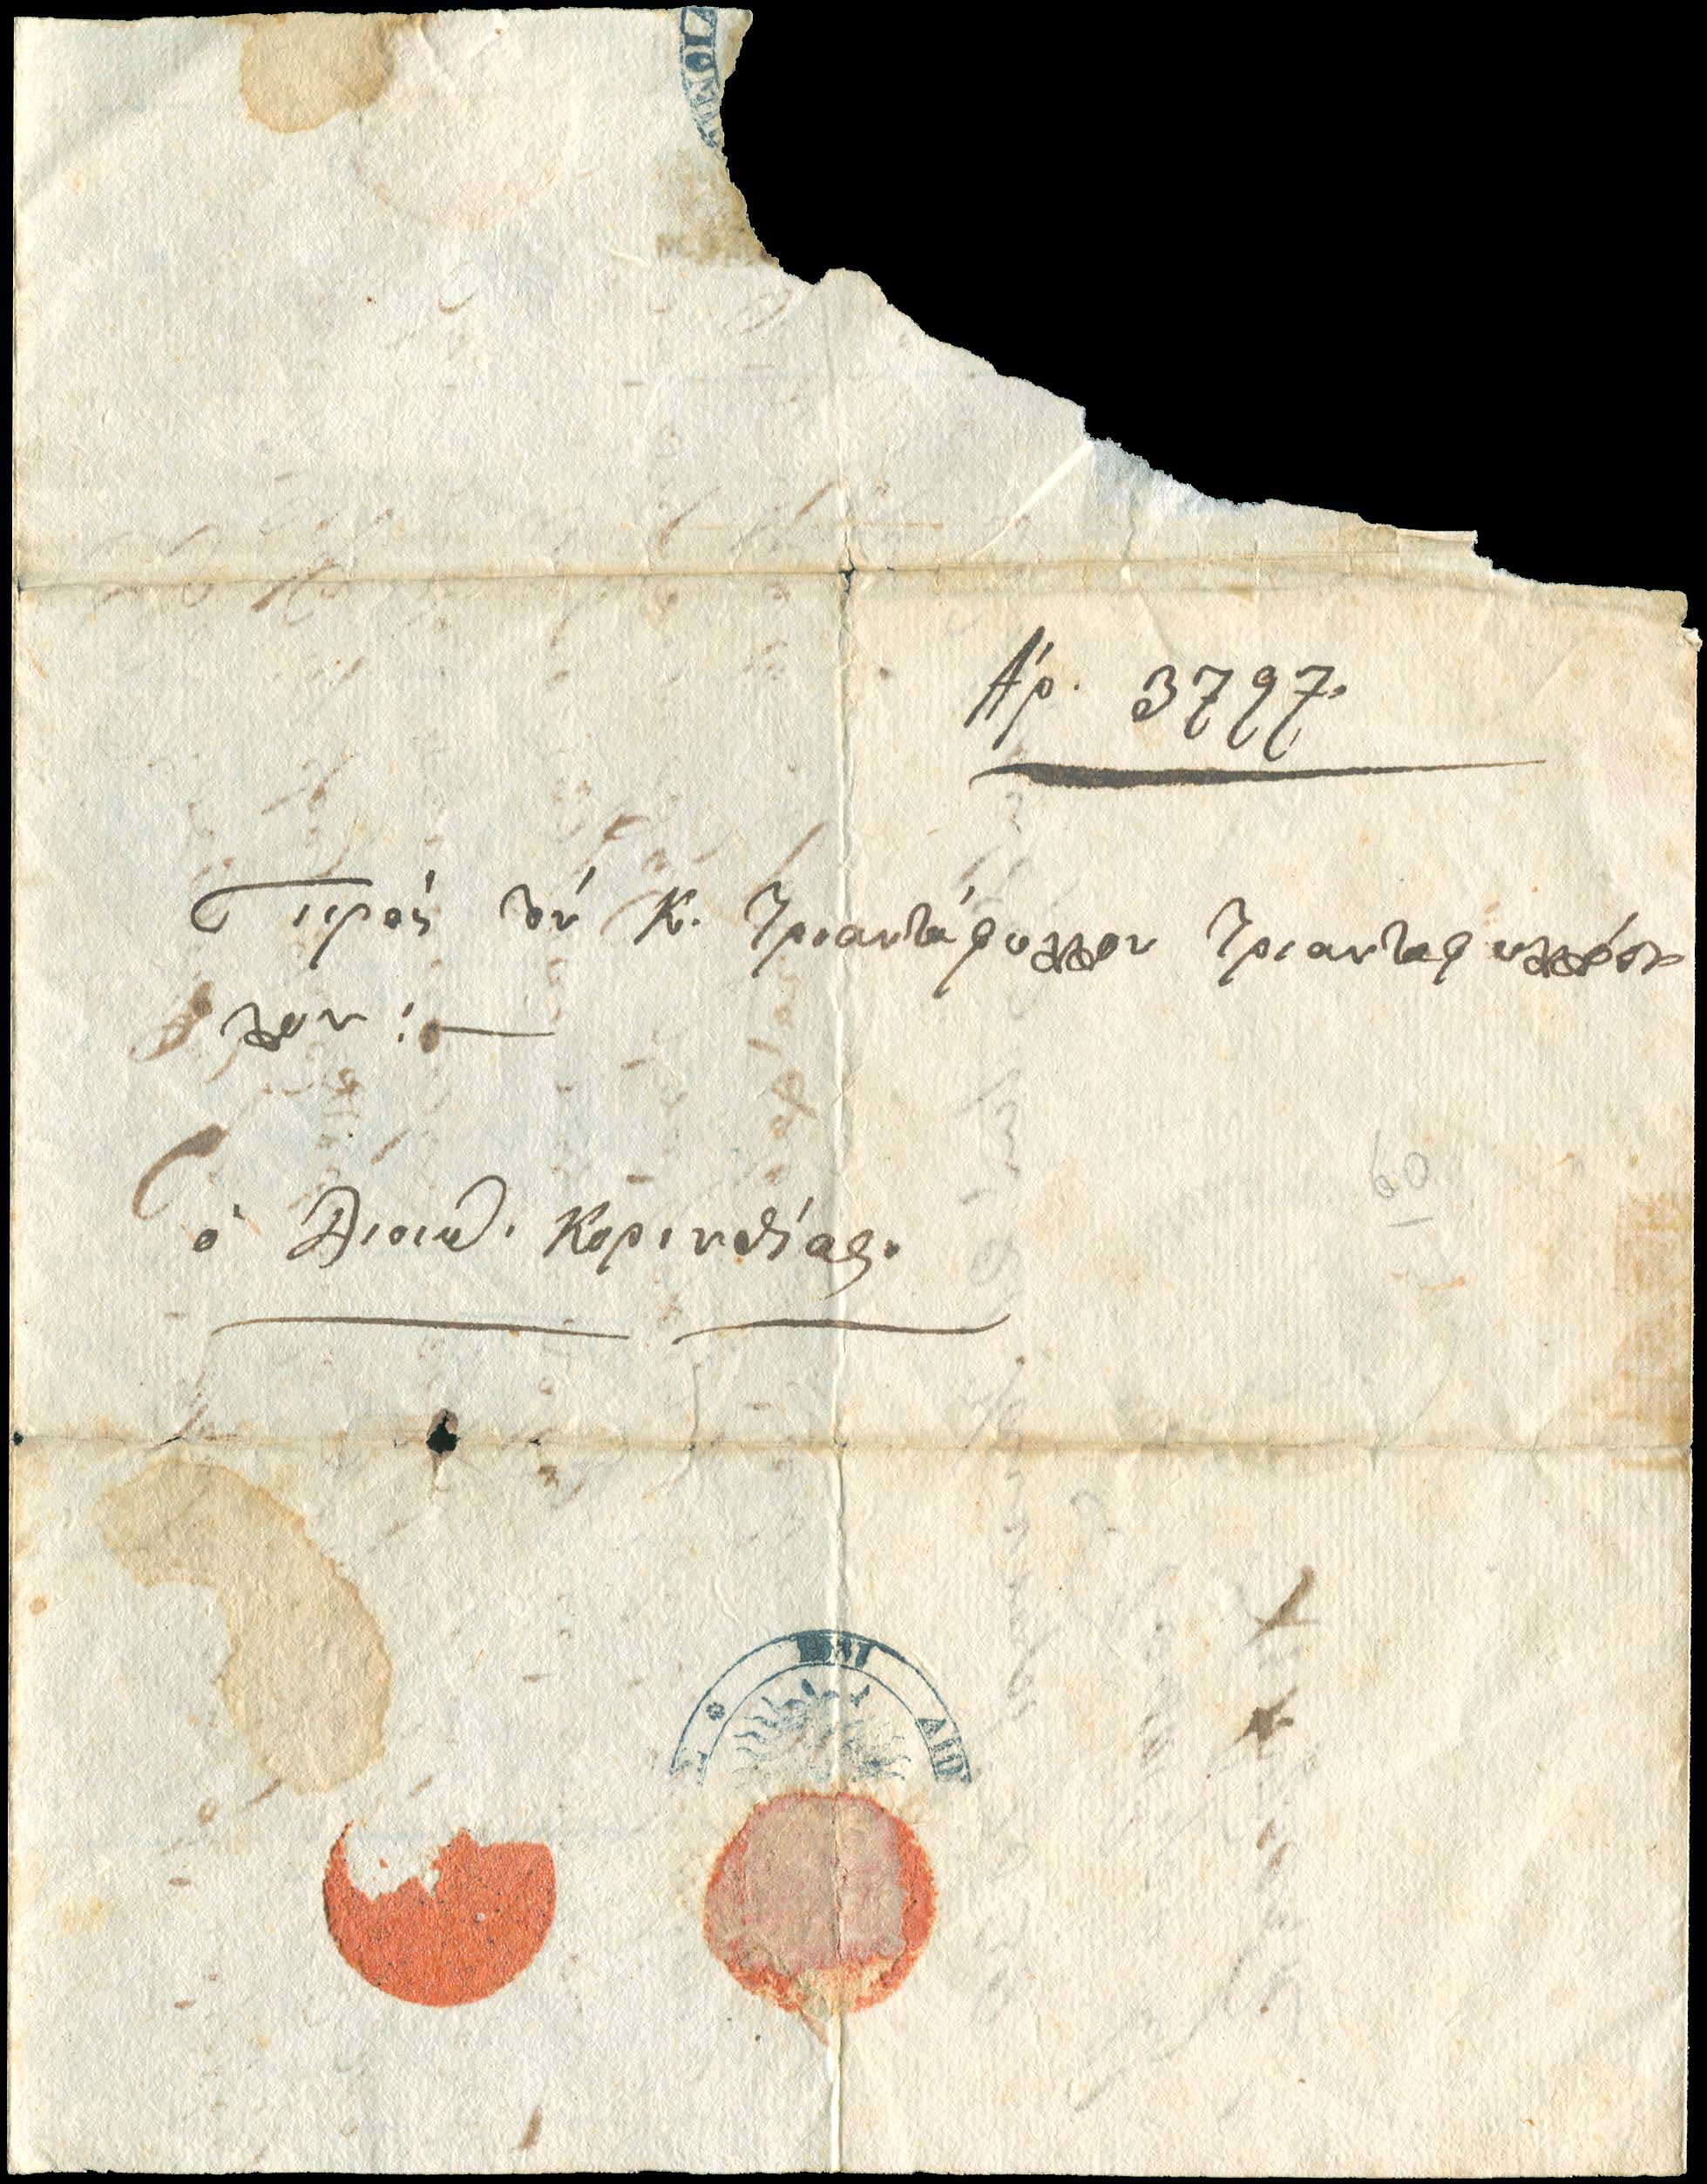 Ἀρ. 3797.
Πρὸς τὸν Κ. Τριαντάφυλλον Τριανταφυλλόπ
λον:—
ὁ Διοικ. Κορινθίας.
60
ΔΙΟ